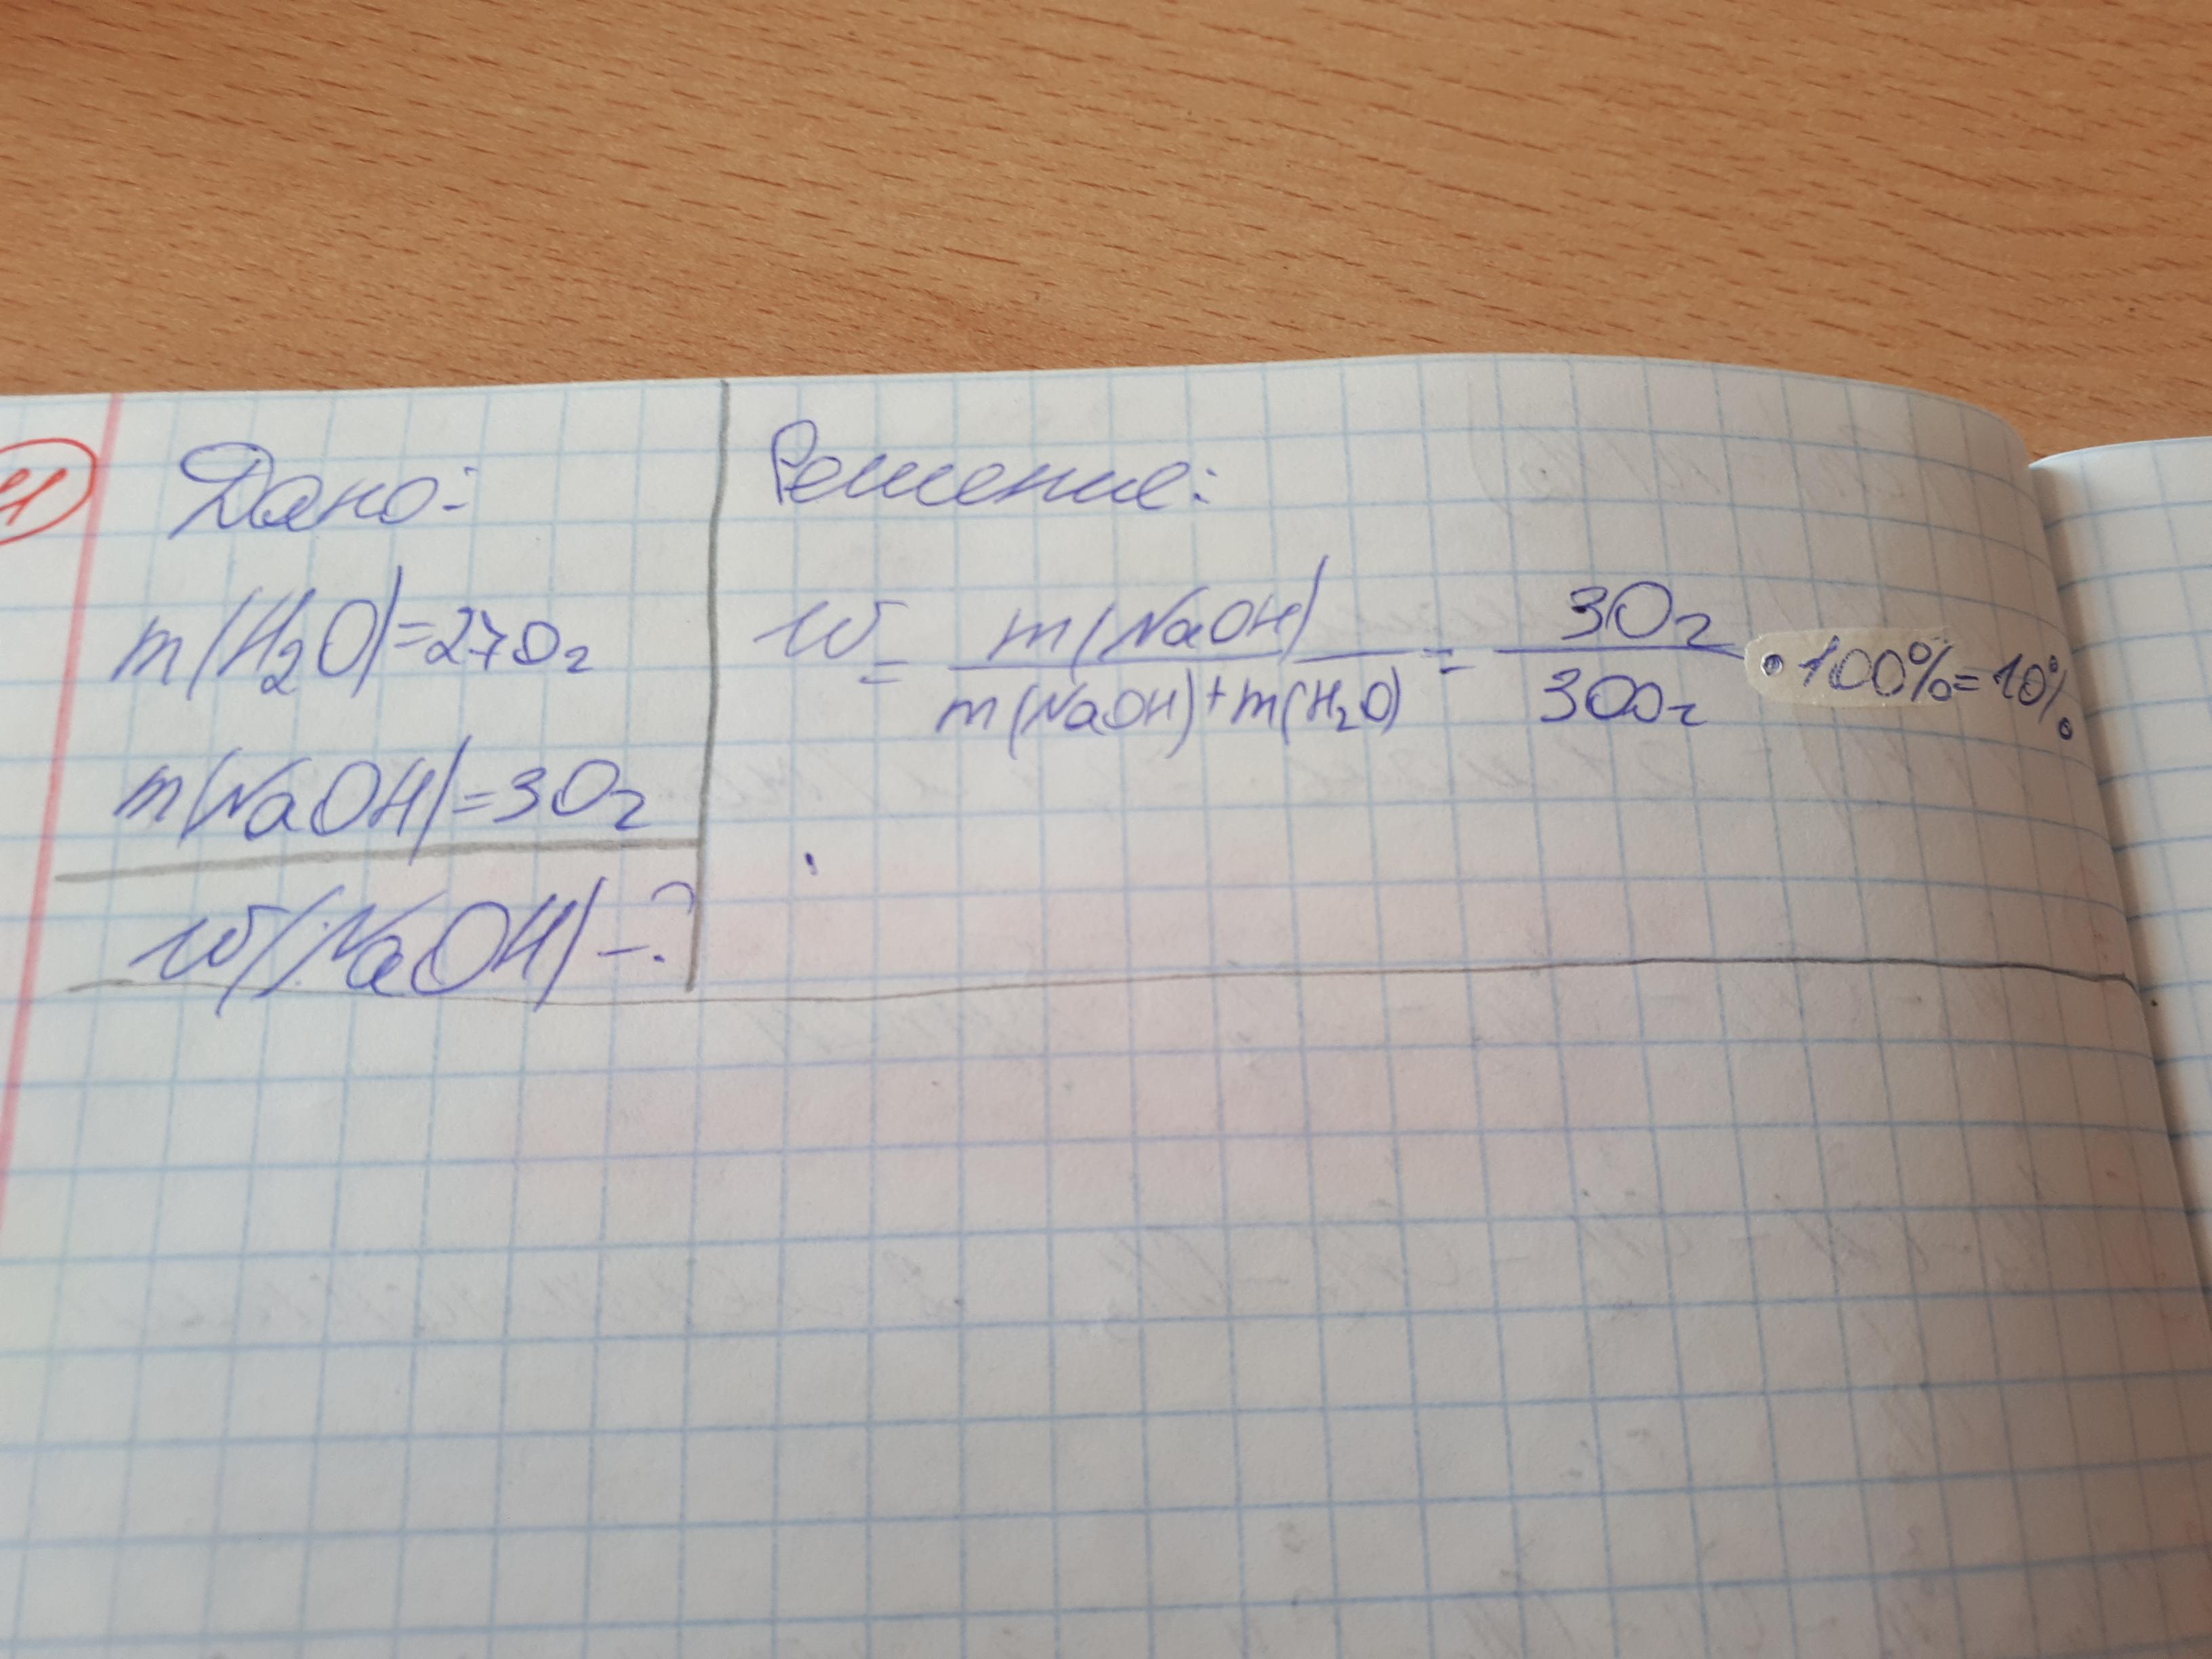 Дано:
m(H₂O)=270г
m(NaOH)=30г
w(NaOH)-?
Решение:
w = m(NaOH) / m(NaOH)+m(H₂O) = 30г / 300г · 100% = 10%